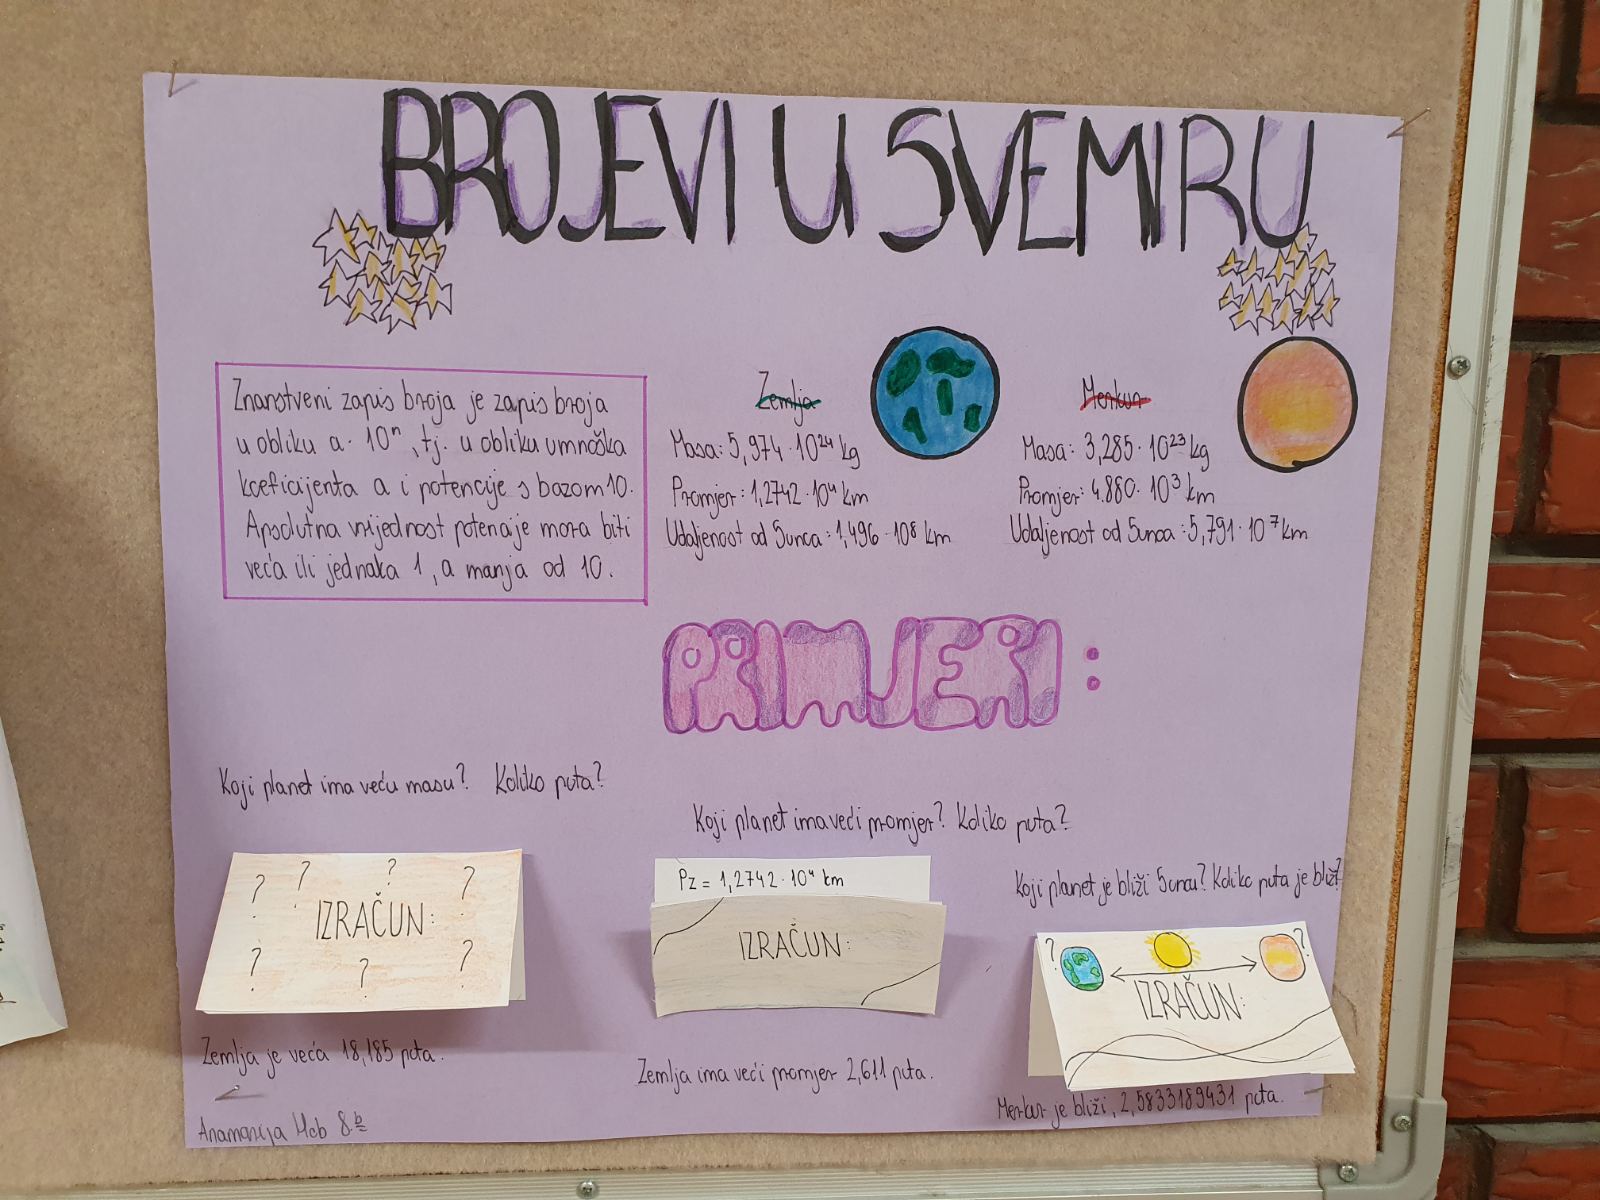 BROJEVI U SVEMIRU
Znanstveni zapis broja je zapis broja
u obliku a · 10ⁿ, tj. u obliku umnoška
koeficijenta a i potencije s bazom 10.
Apsolutna vrijednost potencije mora biti
veća ili jednaka 1, a manja od 10.
Zemlja
Masa: 5,974 · 10²⁴ kg
Promjer: 1,2742 · 10⁴ km
Udaljenost od Sunca: 1,496 · 10⁸ km
Merkur
Masa: 3,285 · 10²³ kg
Promjer: 4.880 · 10³ km
Udaljenost od Sunca: 5,791 · 10⁷ km
PRIMJERI:
Koji planet ima veću masu? Koliko puta?
? ? ? ?
? IZRAČUN: ?
?
Zemlja je veća 18,185 puta.
Koji planet ima veći promjer? Koliko puta?
Pz = 1,2742 · 10⁴ km
IZRAČUN:
Zemlja ima veći promjer 2,611 puta.
Koji planet je bliži Suncu? Koliko puta je bliži?
? ?
IZRAČUN:
Merkur je bliži, 2,5833189431 puta.
8.b